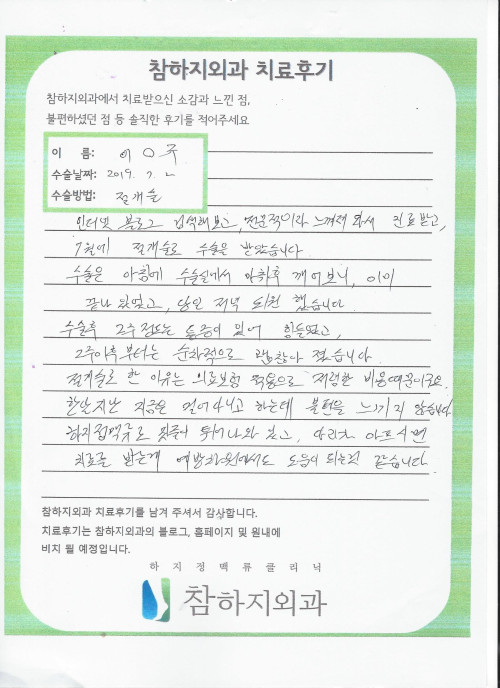 참하지외과 치료후기
참하지외과에서 치료받으신 소감과 느낀 점,
불편하셨던 점 등 솔직한 후기를 적어주세요
이 름: 이○주
수술날짜: 2019. 7. 2
수술방법: 절개술
인터넷 블로그 검색해보고, 전문적이라 느껴져 와서 진료받고,
7월에 절개술로 수술을 받았습니다
수술은 아침에 수술실에서 마취후 깨어보니, 이미
끝나 있었고, 당일 저녁 퇴원 했습니다
수술후 2주 정도는 통증이 있어 힘들었고,
2주이후부터는 순차적으로 괜찮아 졌습니다
절개술로 한 이유는 의료보험 적용으로 저렴한 비용때문이구요.
한달지난 지금은 걸어다니고 하는데 불편을 느끼지 않습니다
하지정맥류로 핏줄이 튀어나와 있고, 다리가 아프시면
치료를 받는게 예방차원에서도 도움이 되는것 같습니다.
참하지외과 치료후기를 남겨 주셔서 감사합니다.
치료후기는 참하지외과의 블로그, 홈페이지 및 원내에
비치 될 예정입니다.
하지정맥류클리닉
참하지외과